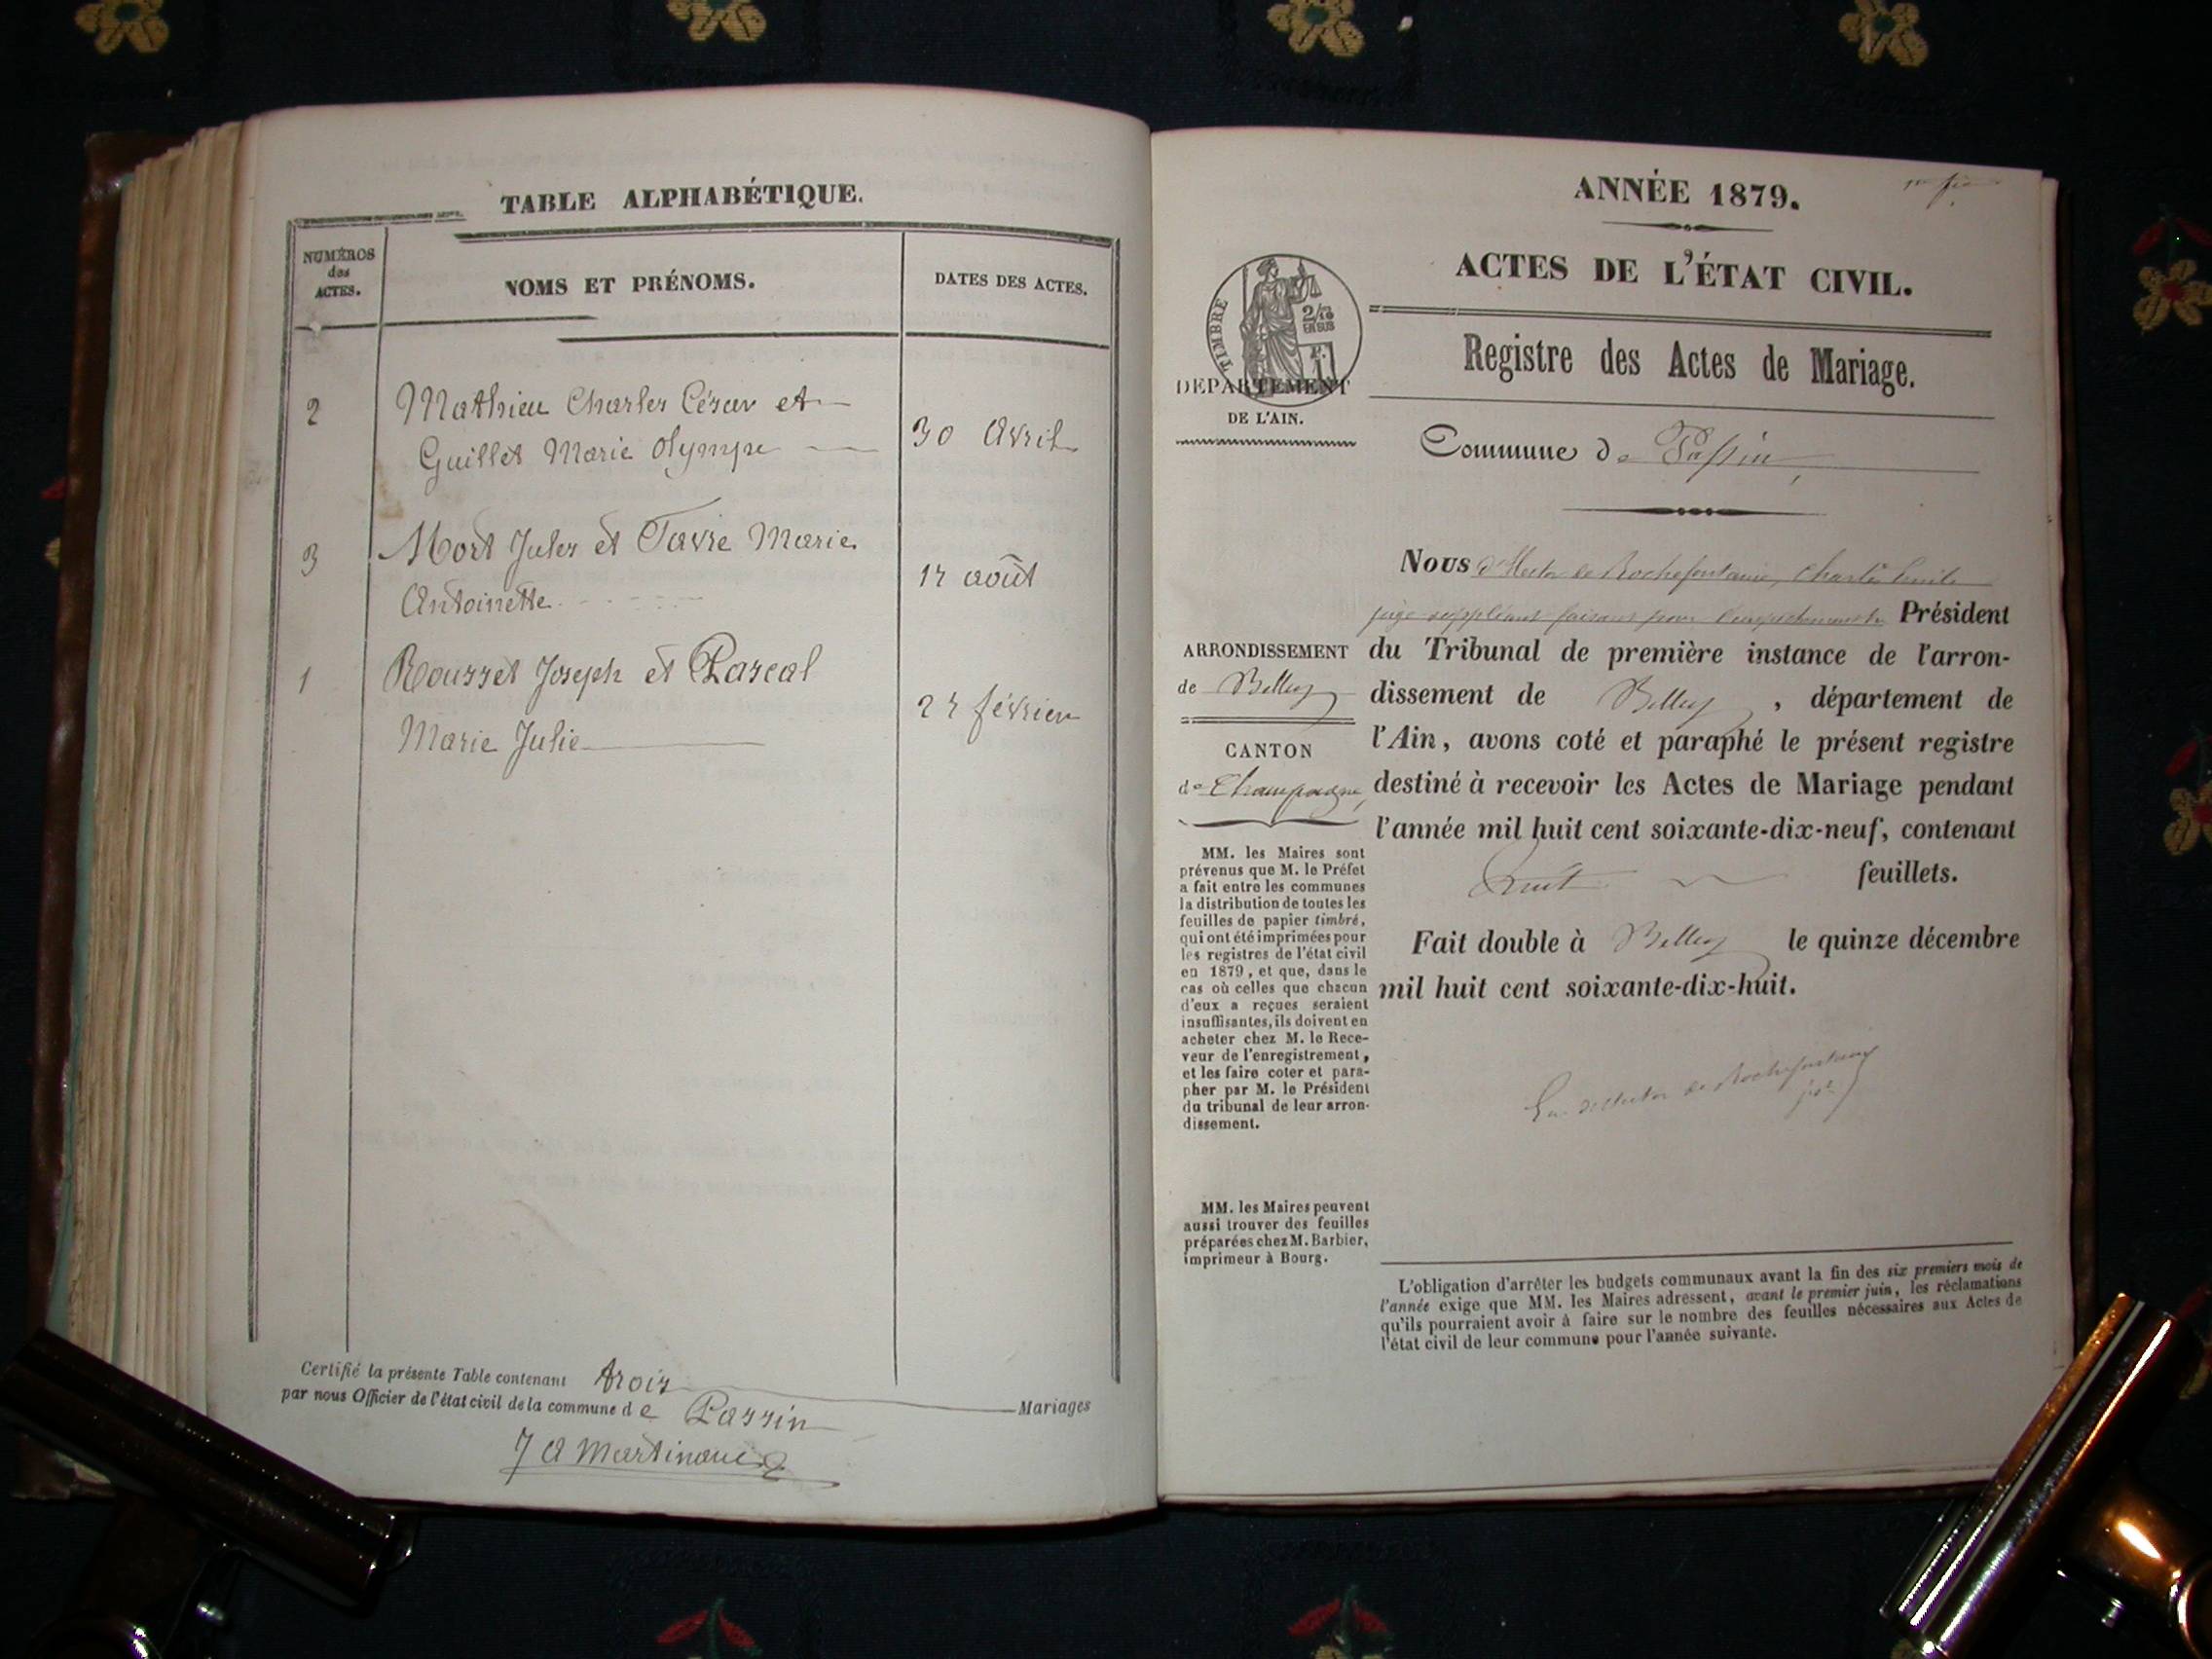 TABLE ALPHABÉTIQUE.
NUMÉROS
des
ACTES.
NOMS ET PRÉNOMS.
DATES DES ACTES.
2
Mathieu Charles César et
Guillet Marie Olympe
30 Avril
3
Mort Jules et Favre Marie
Antoinette
août
1
Rousset Joseph et Pascal
Marie Julie
février
Certifié la présente Table contenant trois
Mariages
par nous Officier de l'état civil de la commune de Passin
ANNÉE 1879.
ACTES DE L'ÉTAT CIVIL.
Registre des Actes de Mariage.
TIMBRE
2/10
EN SUS
DÉPARTEMENT
DE L'AIN.
Commune de Passin
ARRONDISSEMENT
de Belley
CANTON
de Champagne
MM. les Maires sont
prévenus que M. le Préfet
a fait entre les communes
la distribution de toutes les
feuilles de papier timbré,
qui ont été imprimées pour
les registres de l'état civil
en 1879, et que, dans le
cas où celles que chacun
d'eux a reçues seraient
insuffisantes, ils doivent en
acheter chez M. le Rece-
veur de l'enregistrement,
et les faire coter et para-
pher par M. le Président
du tribunal de leur arron-
dissement.
MM. les Maires peuvent
aussi trouver des feuilles
préparées chez M. Barbier,
imprimeur à Bourg.
Nous de Rochefontaine, Charles Emile
juge suppléant faisant pour l'empêchement du Président
du Tribunal de première instance de l'arron-
dissement de Belley, département de
l'Ain, avons coté et paraphé le présent registre
destiné à recevoir les Actes de Mariage pendant
l'année mil huit cent soixante-dix-neuf, contenant
huit feuillets.
Fait double à Belley le quinze décembre
mil huit cent soixante-dix-huit.
de Rochefontaine
L'obligation d'arrêter les budgets communaux avant la fin des six premiers mois de
l'année exige que MM. les Maires adressent, avant le premier juin, les réclamations
qu'ils pourraient avoir à faire sur le nombre des feuilles nécessaires aux Actes de
l'état civil de leur commune pour l'année suivante.